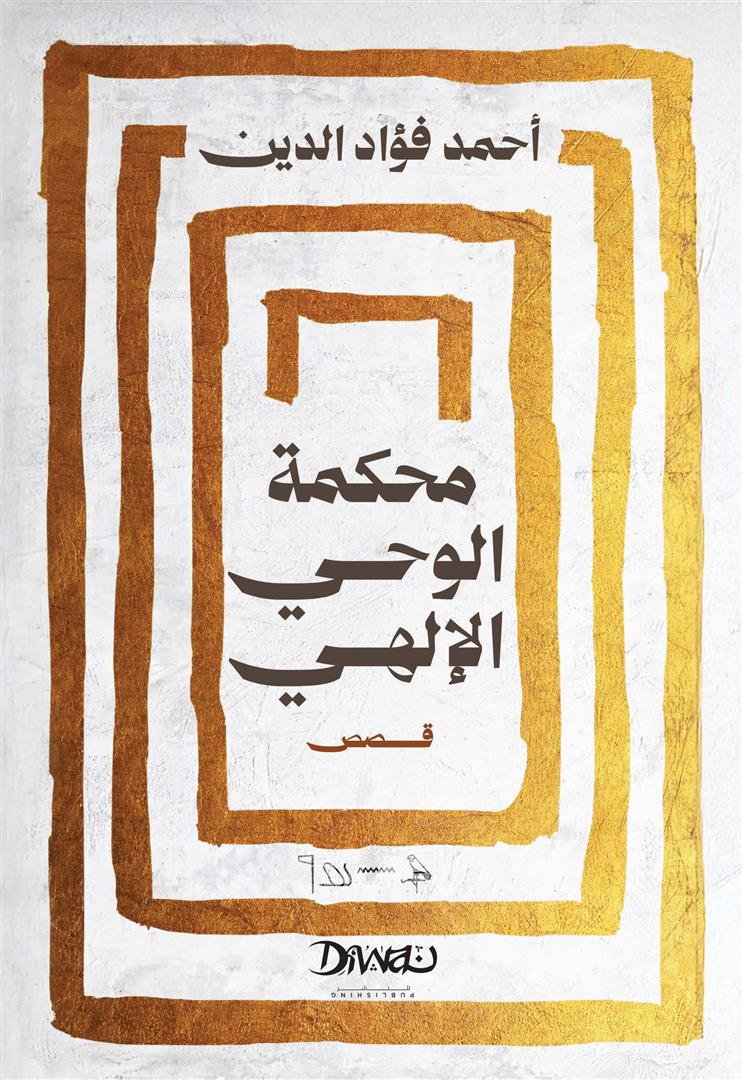 أحمد فؤاد الدين
محكمة
الوحي
الإلهي
قصص
DiWaN
للنشر
PUBLISHING